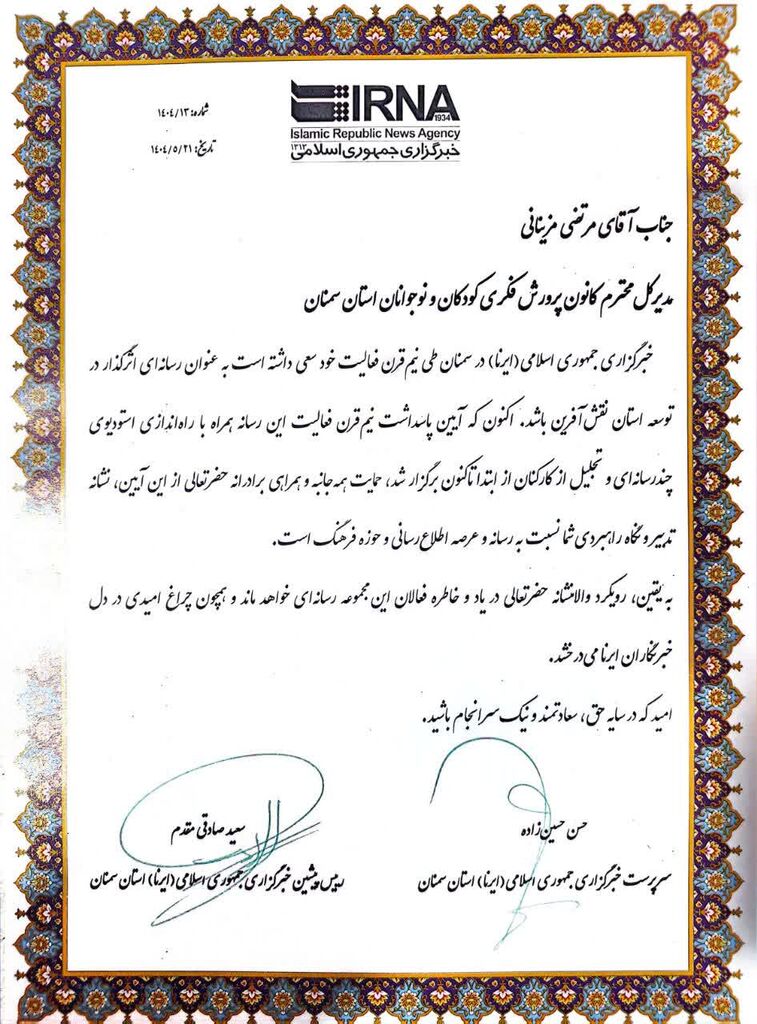 IRNA
1934
Islamic Republic News Agency
خبرگزاری جمهوری اسلامی ۱۳۱۳
شماره: ۱۴۰۴/۱۳
تاریخ: ۱۴۰۴/۵/۲۱
جناب آقای مرتضی مزینانی
مدیرکل محترم کانون پرورش فکری کودکان و نوجوانان استان سمنان
خبرگزاری جمهوری اسلامی (ایرنا) در سمنان طی نیم قرن فعالیت خود سعی داشته است به عنوان رسانه‌ای اثرگذار در
توسعه استان نقش آفرین باشد. اکنون که آیین پاسداشت نیم قرن فعالیت این رسانه همراه با راه‌اندازی استودیوی
چندرسانه‌ای و تجلیل از کارکنان از ابتدا تاکنون برگزار شد، حمایت همه جانبه و همراهی برادرانه حضرتعالی از این آیین، نشانه
تدبیر و نگاه راهبردی شما نسبت به رسانه و عرصه اطلاع رسانی و حوزه فرهنگ است.
به یقین، رویکرد والامنشانه حضرتعالی در یاد و خاطره فعالان این مجموعه رسانه‌ای خواهد ماند و همچون چراغ امیدی در دل
خبرنگاران ایرنا می‌درخشد.
امید که در سایه حق، سعادتمند و نیک سرانجام باشید.
حسن حسین‌زاده
سرپرست خبرگزاری جمهوری اسلامی (ایرنا) استان سمنان
سعید صادقی مقدم
رییس پیشین خبرگزاری جمهوری اسلامی (ایرنا) استان سمنان